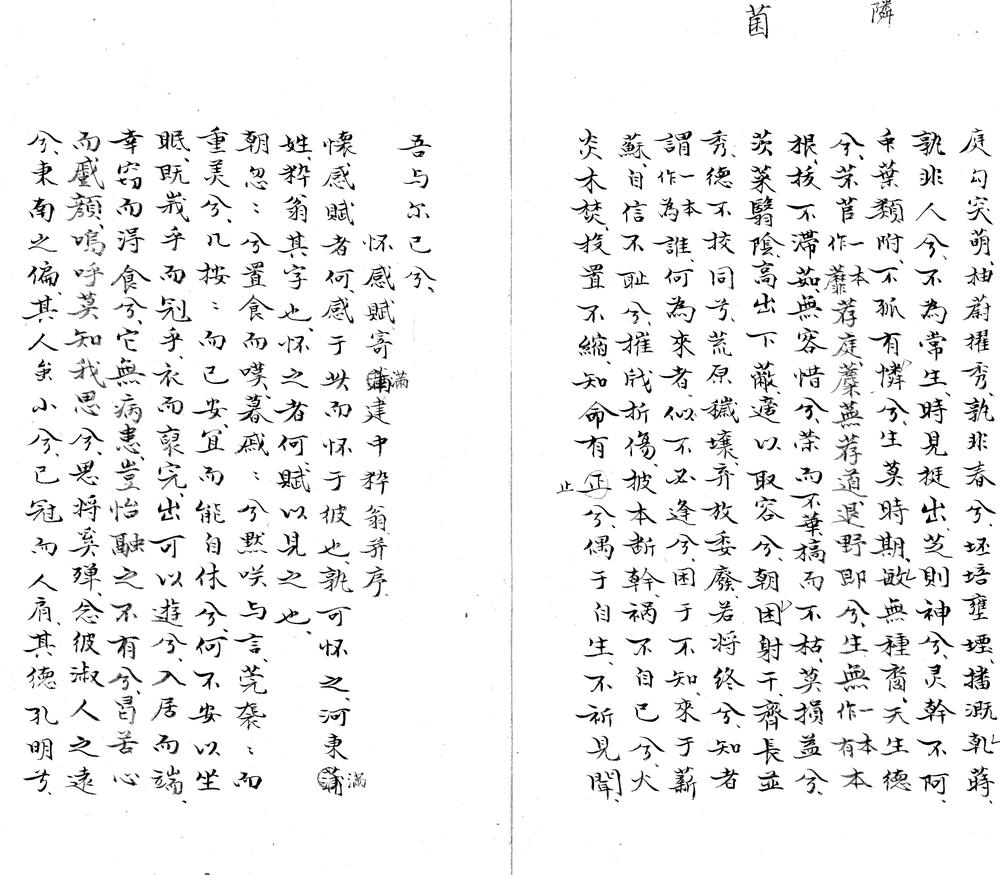 隣
菌
庭勾突萌、抽蔚擢秀、孰非春兮、坯培壅堙、播溉乹蒔、
孰非人兮、不為常生、時見挺出、芝則神兮、灵幹不阿、
千葉類附、不孤有憐兮、生莫時期、敏無種裔、天生德
兮、苶苢一本作蘼荐庭、蘼蕪荐道、退野即兮、生無一本作有本
根、抜不滞茹、無容惜兮、荣而不華、槁而不枯、莫損益兮、
茨菉翳陰、高出下蔽、適以取容兮、朝困射干、齊長並
秀、德不挍同兮、荒原穢壤、弃放委廢、若将終兮、知者
謂一本作為誰、何為來者、似不必逢兮、困于不知、來于薪
蘇、自信不耻兮、摧戕折傷、披本断幹、禍不自已兮、火
炎木焚、投置不縮、知命有正止兮、偶于自生、不祈見聞、
吾与尔已兮、
怀感賦寄蒲滿建中粹翁并序
懷感賦者何、感于此而怀于彼也、孰可怀之、河東蒲滿
姓、粹翁其字也、怀之者何、賦以見之也、
朝忽〻兮置食而嘆、暮戚〻兮黙咲与言、莞袭〻而
重美兮、几按〻而已安、冝而能自休兮、何不安以坐
眠、既峩乎而冠乎、衣而裒完、出可以遊兮、入居而端、
幸窃而淂食兮、它無病患、豈怡融之不有兮、曷苦心
而慼顔、嗚呼莫知我思兮、思将奚殚、念彼淑人之遠
兮、東南之偏、其人矣小兮、已冠而人肩、其德孔明兮、